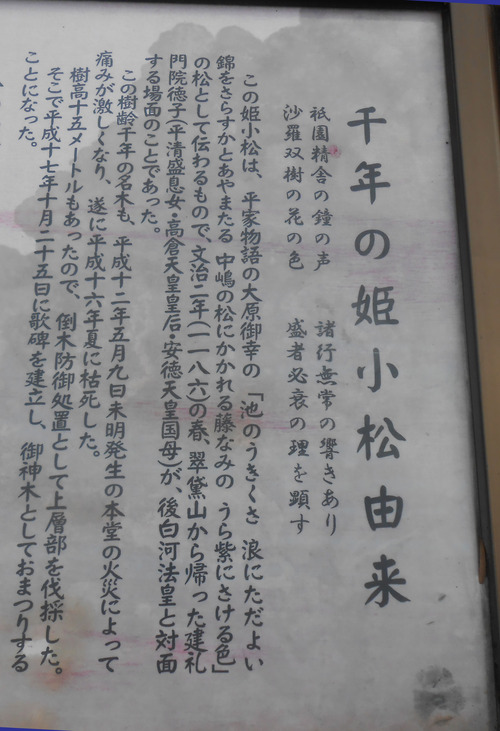 千年の姫小松由来
祇園精舎の鐘の声　諸行無常の響きあり
沙羅双樹の花の色　盛者必衰の理を顕す
この姫小松は、平家物語の大原御幸の「池のうきくさ　浪にただよい
錦をさらすかとあやまたる　中嶋の松にかかれる藤なみの　うら紫にさける色」
の松として伝わるもので、文治二年(一一八六)の春、翠黛山から帰った建礼
門院徳子(平清盛息女・高倉天皇皇后・安徳天皇国母)が、後白河法皇と対面
する場面のことであった。
この樹齢千年の名木も、平成十二年五月九日未明発生の本堂の火災によって
痛みが激しくなり、遂に平成十六年夏に枯死した。
樹高十五メートルもあったので、倒木防御処置として上層部を伐採した。
そこで平成十七年十月二十五日に歌碑を建立し、御神木としておまつりする
ことになった。